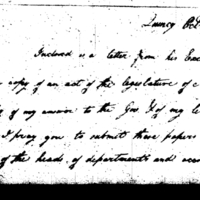 Quincy Oct
Inclosed is a letter from his Exce
copy of an act of the legislature of
of my answer to the Gov. & of my le
I pray you to submit these papers
of the heads of departments and acco